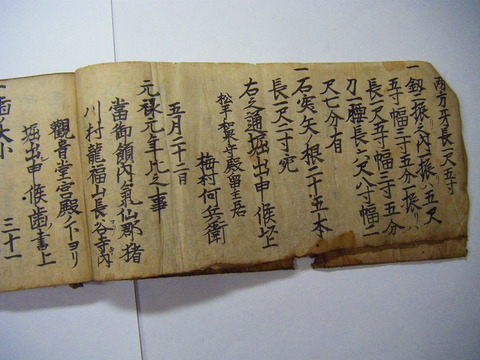 両方牙長一尺五寸
一釼二振之内一振ハ五尺
五寸幅三寸五分一振ハ
長二尺五寸幅三寸五分
刀一腰長八尺八寸幅二
尺七分有
一石突矢ノ根二十五本
長一尺二寸宛
右之通堀出申候以上
松平和泉守殿留主居
梅村何兵衛
五月二十二日
元禄元年比之事
當御領内氣仙郡猪
川村龍福山長谷寺内
觀音堂宮殿ノ下ヨリ
堀出申候歯書上
一歯大小 三十一